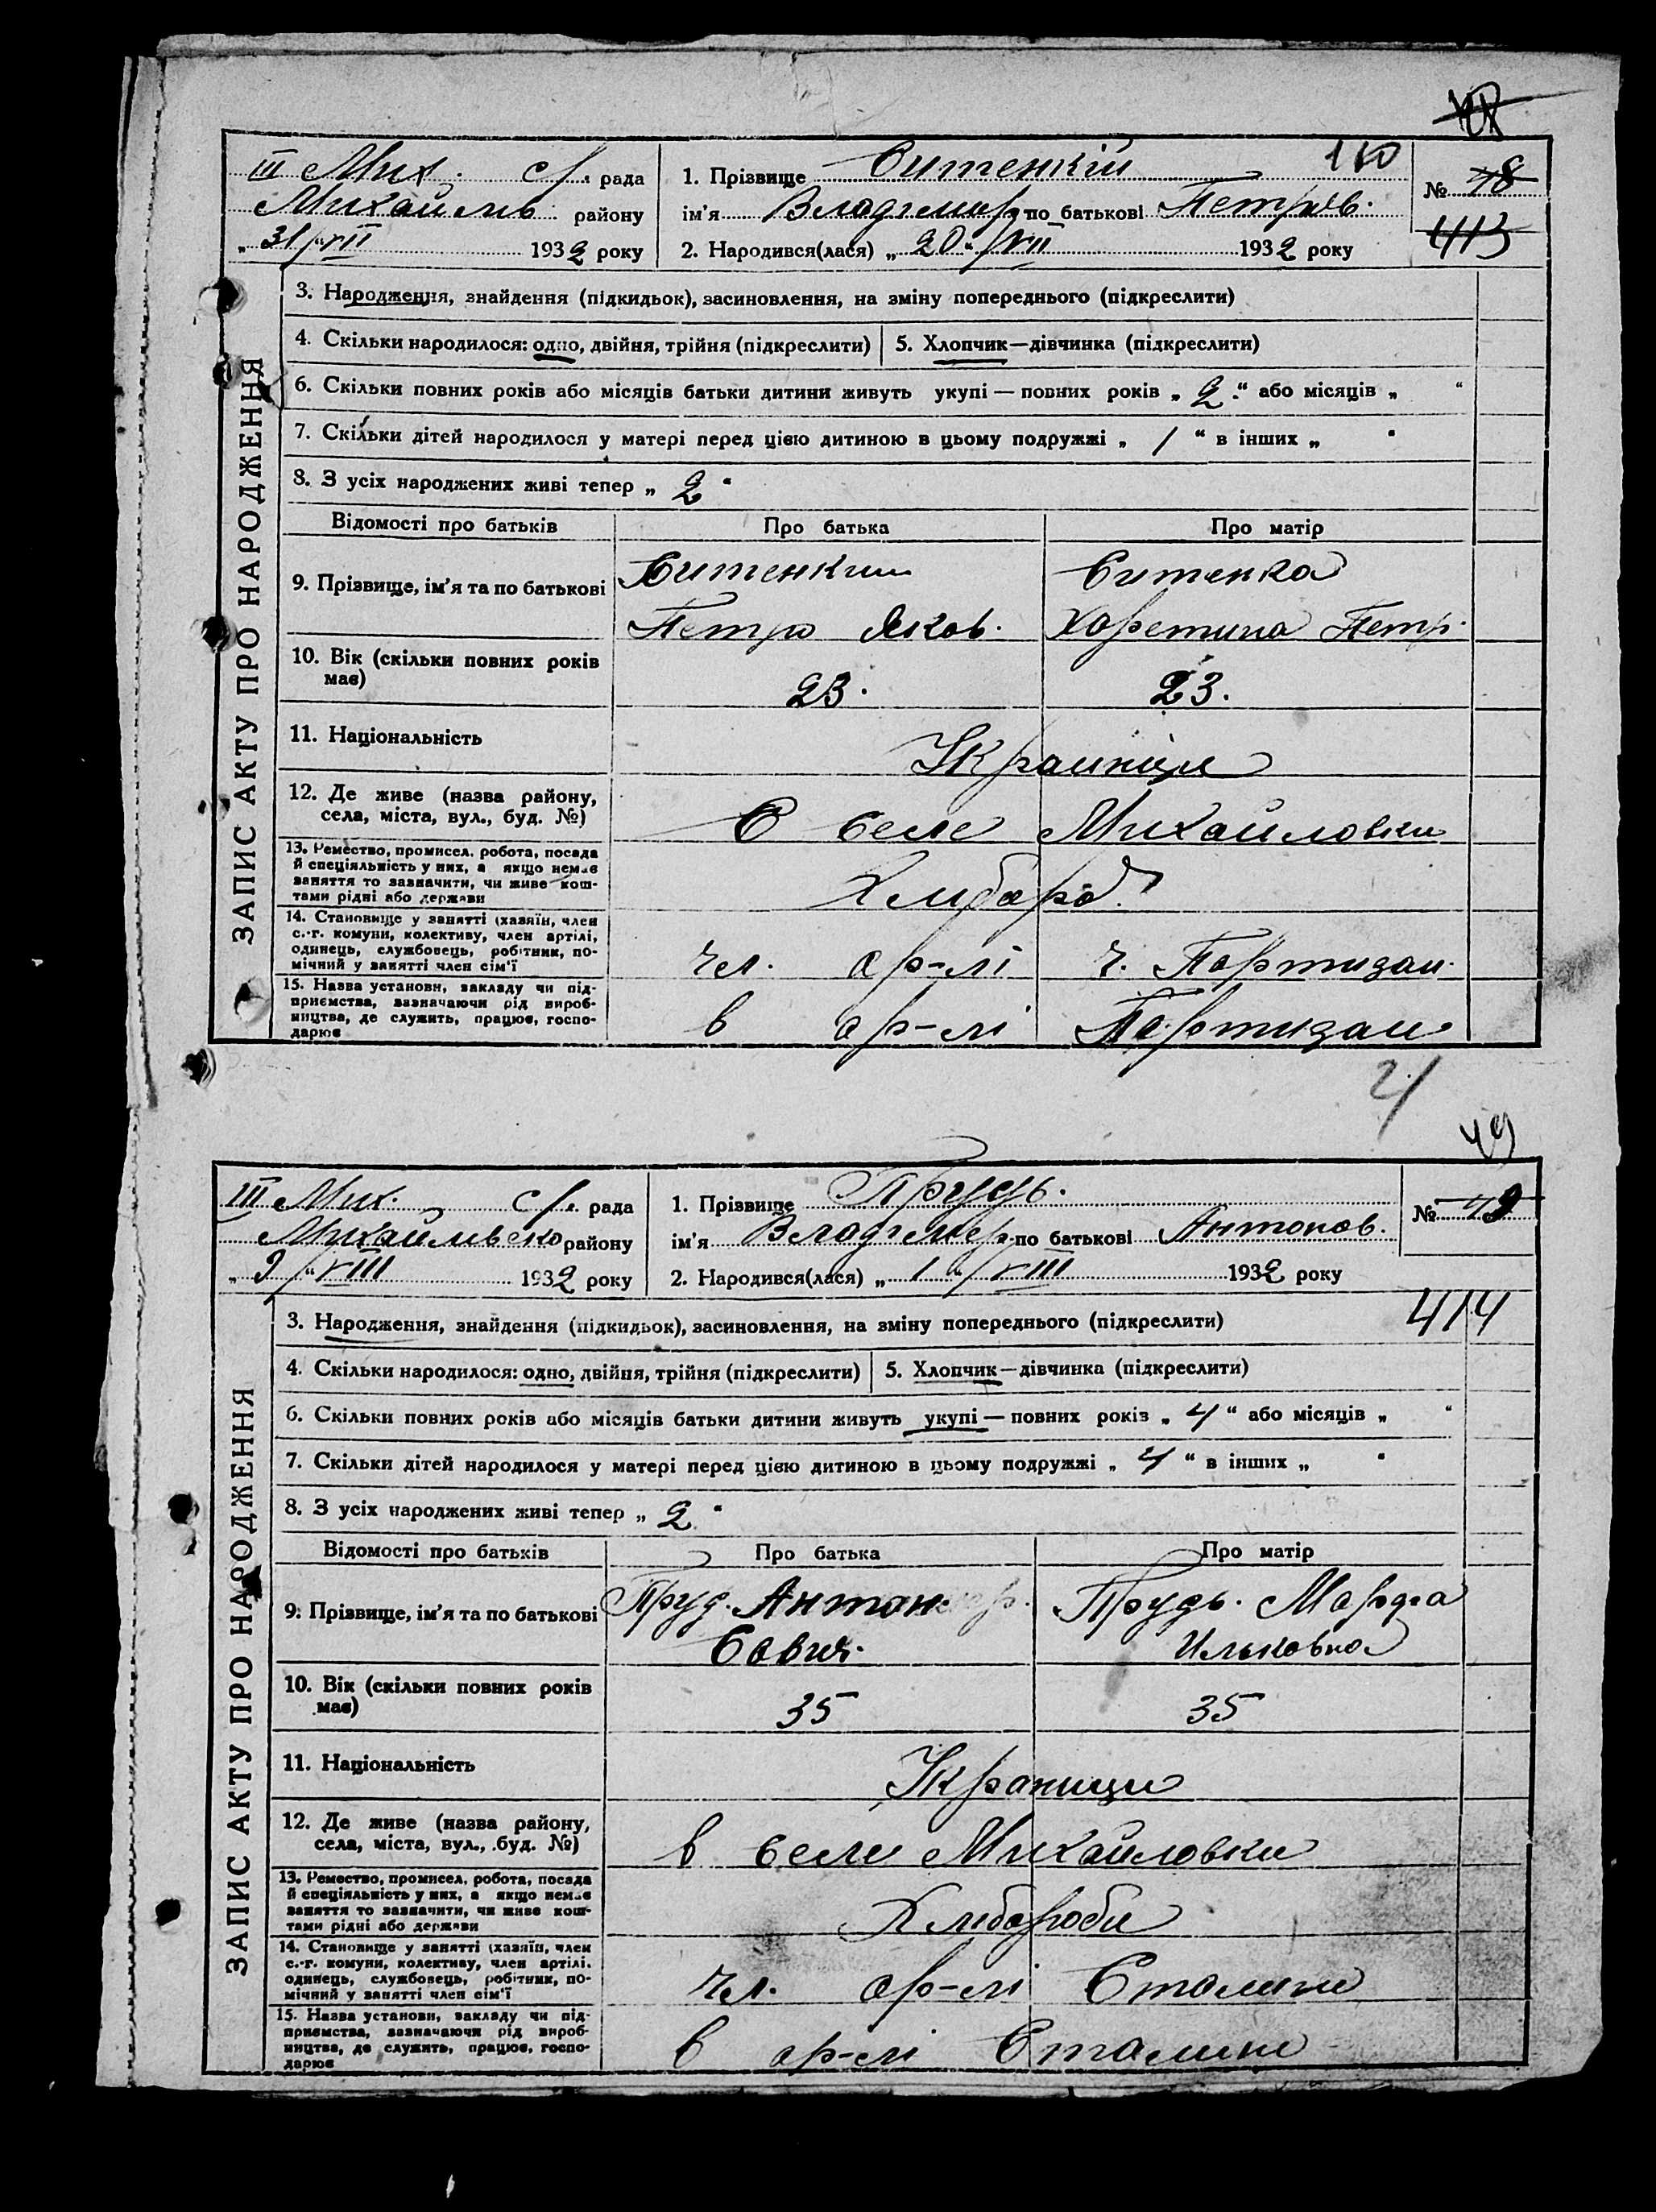 110
III Мих. с/. рада
Михайлів району
„ 31 “ VII 1932 року
1. Прізвище Ситенкій
ім'я Владімир по батькові Петров.
2. Народився(лася) „ 20 “ VII 1932 року
№ 48
413
ЗАПИС АКТУ ПРО НАРОДЖЕННЯ
3. Народження, знайдення (підкидьок), засиновлення, на зміну попереднього (підкреслити)
4. Скільки народилося: одно, двійня, трійня (підкреслити)
5. Хлопчик—дівчинка (підкреслити)
6. Скільки повних років або місяців батьки дитини живуть укупі — повних років „ 2 “ або місяців „ “
7. Скільки дітей народилося у матері перед цією дитиною в цьому подружжі „ 1 “ в інших „ “
8. З усіх народжених живі тепер „ 2 “
Відомості про батьків Про батька Про матір
9. Прізвище, ім'я та по батькові
Ситенкий
Петро Яков.
Ситенка
Харетина Петр.
10. Вік (скільки повних років
має)
23. 23.
11. Національність
Українци
12. Де живе (назва району,
села, міста, вул., буд. №)
В селе Михайловки
13. Ремество, промисел, робота, посада
й спеціяльність у них, а якщо немає
заняття то зазначити, чи живе кош-
тами рідні або держави
Хлибороб.
14. Становище у занятті (хазяїн, член
с.-г. комуни, колективу, член артілі,
одинець, службовець, робітник, по-
мічний у занятті член сім'ї
чл. ар-лі ч. Партизан.
15. Назва установи, закладу чи під-
приємства, зазначаючи рід вироб-
ництва, де служить, працює, госпо-
дарює
в ар-лі Партизан
49
III Мих. с/. рада
Михайлівсько району
„ 9 “ VIII 1932 року
1. Прізвище Прудь.
ім'я Владімер. по батькові Антонов.
2. Народився(лася) „ 1 “ VIII 1932 року
№ 49
414
ЗАПИС АКТУ ПРО НАРОДЖЕННЯ
3. Народження, знайдення (підкидьок), засиновлення, на зміну попереднього (підкреслити)
4. Скільки народилося: одно, двійня, трійня (підкреслити)
5. Хлопчик—дівчинка (підкреслити)
6. Скільки повних років або місяців батьки дитини живуть укупі — повних років „ 4 “ або місяців „ “
7. Скільки дітей народилося у матері перед цією дитиною в цьому подружжі „ 4 “ в інших „ “
8. З усіх народжених живі тепер „ 2 “
Відомості про батьків Про батька Про матір
9. Прізвище, ім'я та по батькові
Пруд. Антон
Савич.
Прудь. Марфа
Ильковна
10. Вік (скільки повних років
має)
35 35
11. Національність
Украници
12. Де живе (назва району,
села, міста, вул., буд. №)
в селе Михайловки
13. Ремество, промисел, робота, посада
й спеціяльність у них, а якщо немає
заняття то зазначити, чи живе кош-
тами рідні або держави
Хлибороби
14. Становище у занятті (хазяїн, член
с.-г. комуни, колективу, член артілі,
одинець, службовець, робітник, по-
мічний у занятті член сім'ї
чл. ар-лі Сталини
15. Назва установи, закладу чи під-
приємства, зазначаючи рід вироб-
ництва, де служить, працює, госпо-
дарює
в ар-лі Сталини